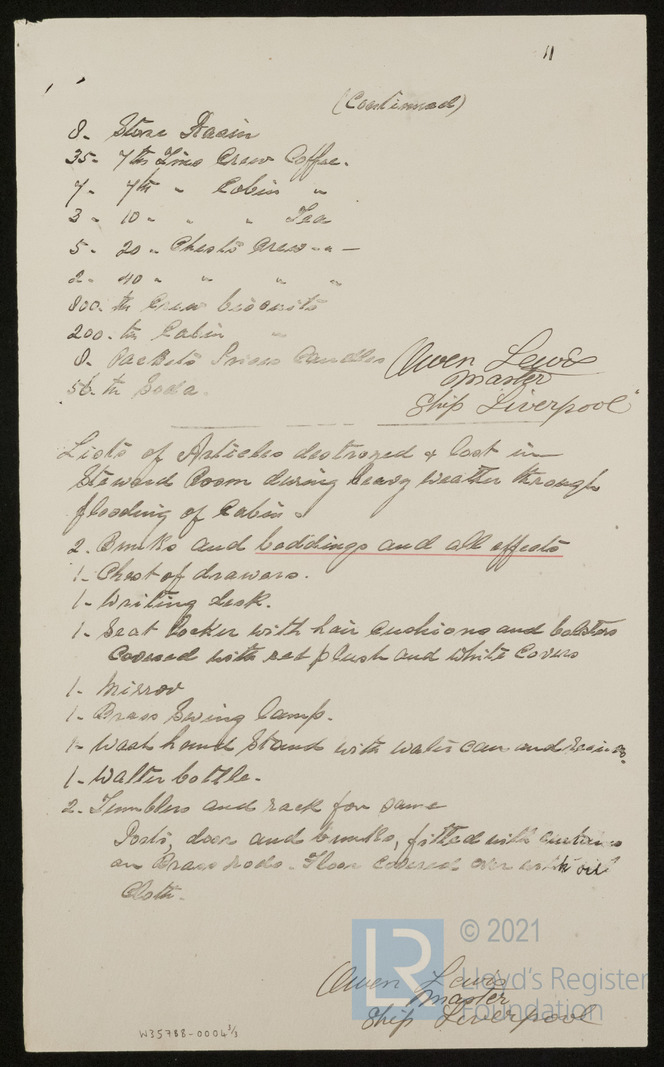 11
(Continued)
8 - Stove
35 - 7 lb Tins Crew Coffee -
7 - 7 lb " Cabin "
3 - 10 " " " Tea
5 - 20 " Chests Crew " " -
2 - 40 " " " "
800 - lb Crew biscuits
200 - lb Cabin "
8 - Packets Prices Candles
56 - lb Soda.
Owen Lewis
Master
Ship Liverpool
Lists of Articles destroyed & lost in
Steward Room during heavy weather through
flooding of Cabin.
2 - Bunks and beddings and all effects
1 - Chest of drawers.
1 - Writing desk.
1 - Seat Locker with hair cushions and bolsters
Covered with red plush and white covers
1 - Mirror
1 - Brass Swing Lamp.
1 - Wash hand Stand with water can and
1 - Watter bottle -
2 - Tumblers and rack for same
Ports, door and bunks, fitted with curtains
on Brass rods - Floor covered over with oil
Cloth -
Owen Lewis
Master
Ship Liverpool
© 2021
Lloyd's Register
Foundation
LR
W35788-0004 3/3